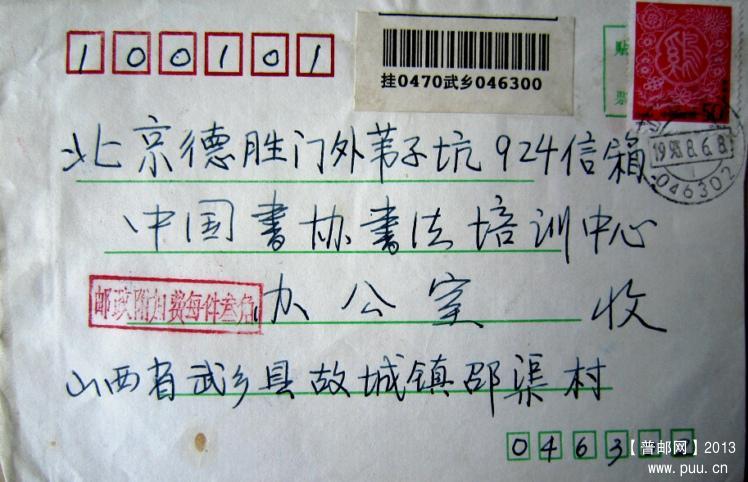 100101
挂0470武乡046300
贴
票
北京德胜门外苇子坑924信箱
1998.8.6.8
046302
中国书协书法培训中心
邮政附加费每件叁角
办公室 收
山西省武乡县故城镇邵渠村
0463
【普邮网】2013
www.puu.cn